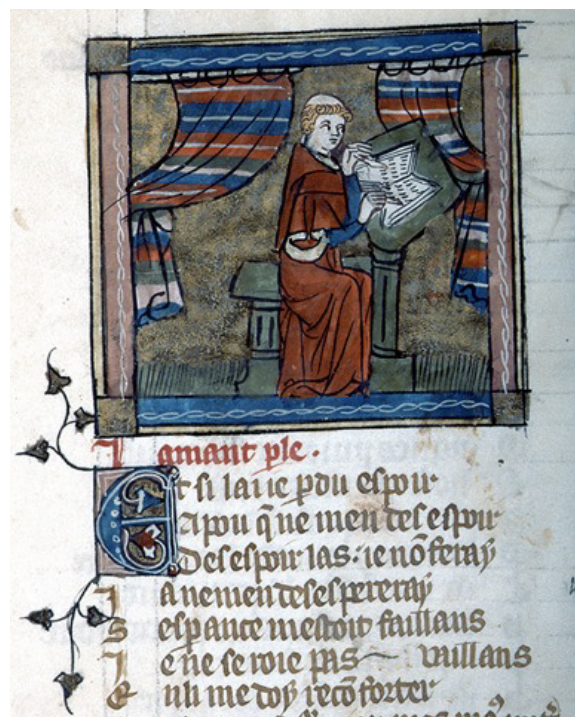 Lamant ple.
Et si lai ie pdu espoir
A pou q̃ ne men desespoir
Desespoir las: ie nõ feray
Ja ne men desespereray
Sespance mestoit faillans
Je ne seroie pas vaillans
En li me doy recõforter